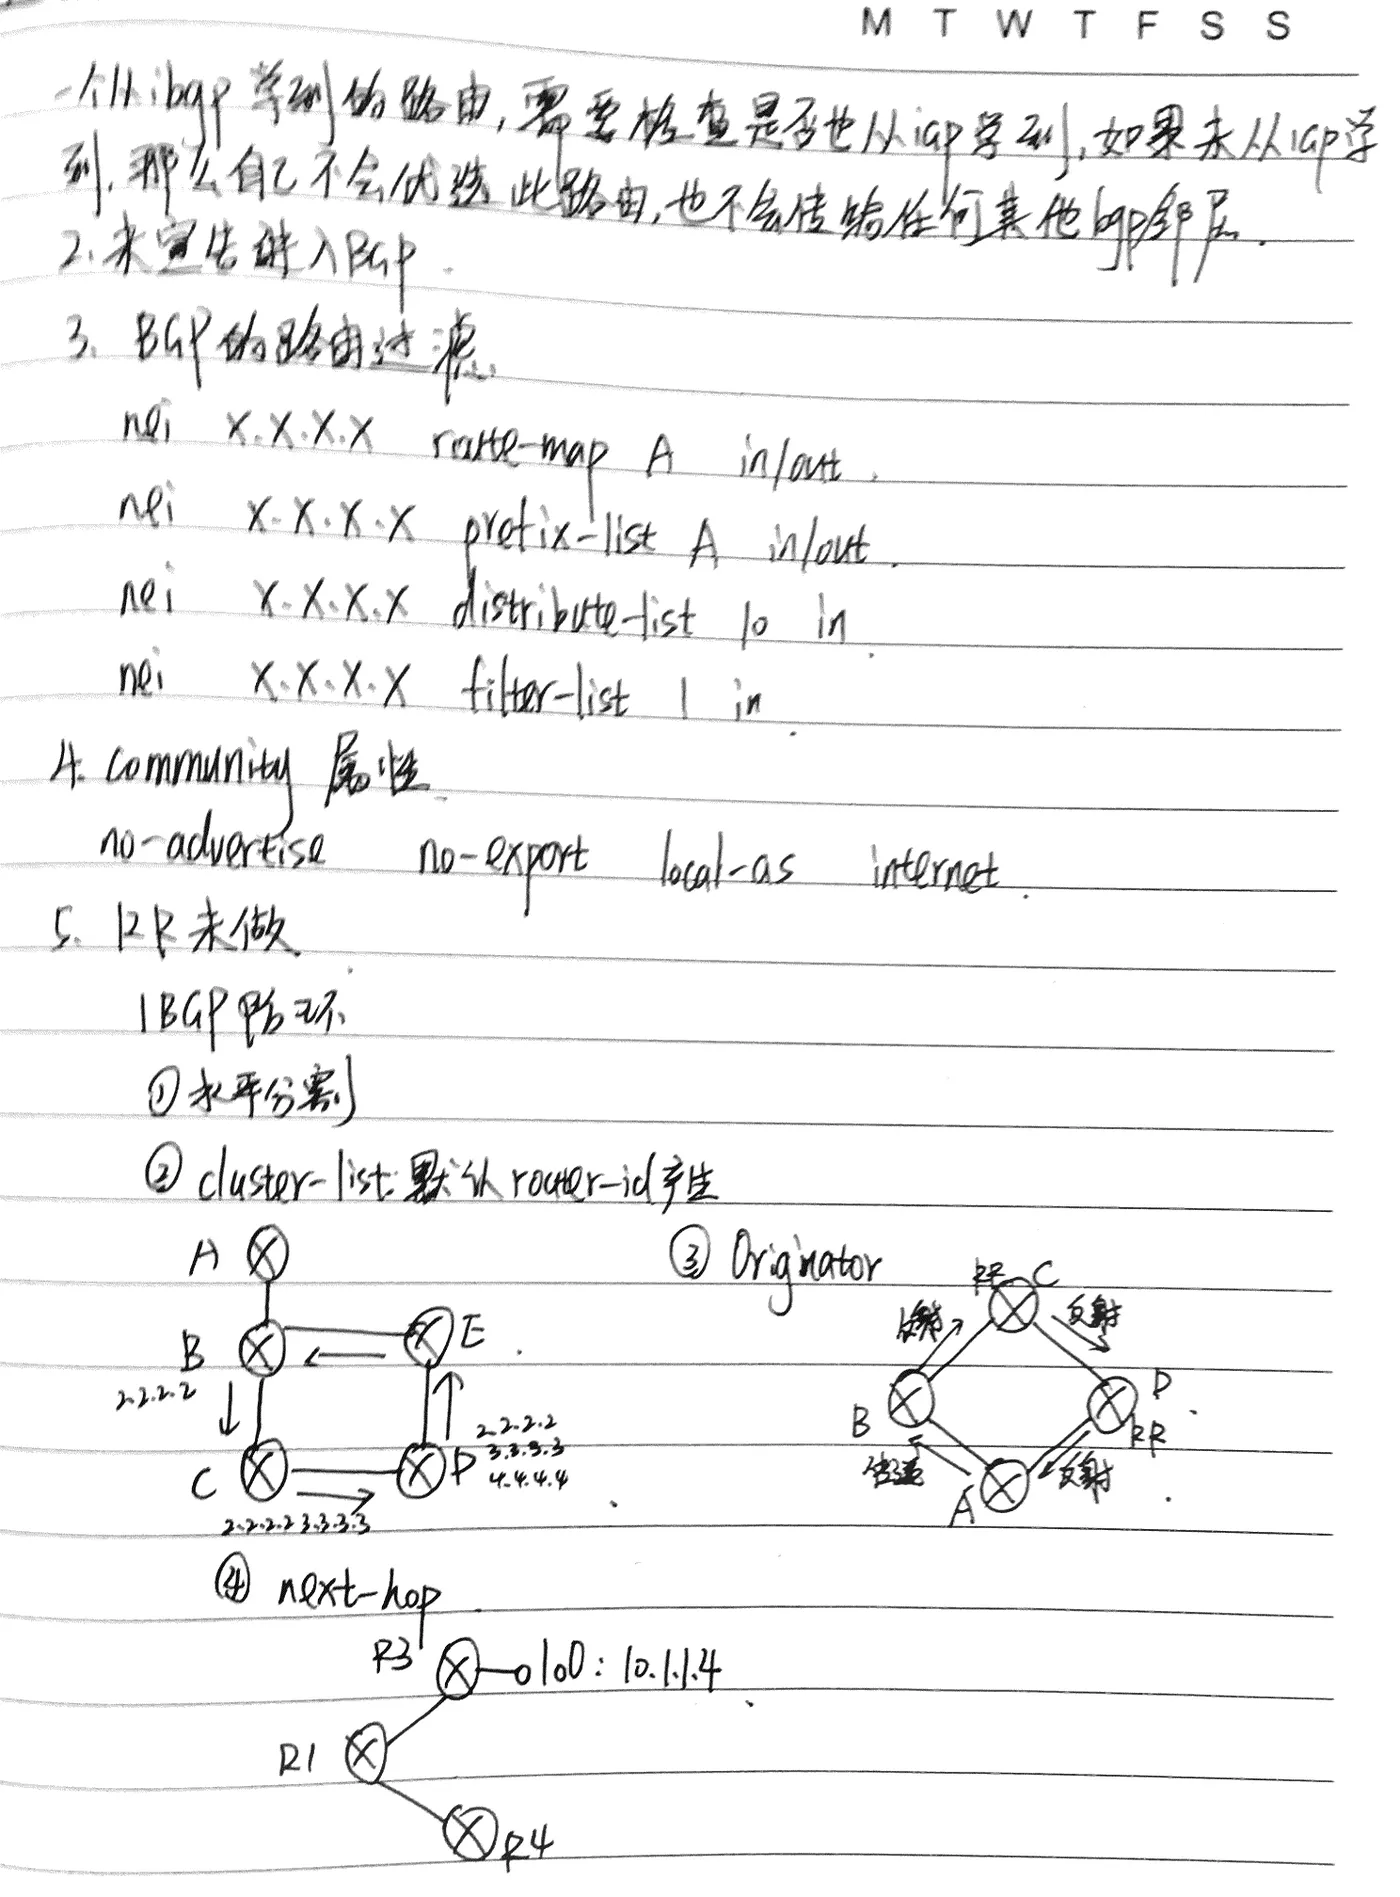 M T W T F S S
一个从ibgp学到的路由,需要检查是否也从igp学到,如果未从igp学
到,那么自己不会优选此路由,也不会传给任何其他bgp邻居.
2.未宣告进入BGP.
3. BGP的路由过滤.
nei x.x.x.x route-map A in/out.
nei x.x.x.x prefix-list A in/out.
nei x.x.x.x distribute-list 10 in.
nei x.x.x.x filter-list 1 in.
4. community 属性.
no-advertise no-export local-as internet.
5. RR未做.
IBGP防环.
①水平分割
② cluster-list:默认router-id产生
A
B
2.2.2.2
C
2.2.2.2 3.3.3.3
D
2.2.2.2
3.3.3.3
4.4.4.4
E
③ Originator
RR C
反射
反射
B
D
RR
传递
A
反射
④ next-hop
R3
lo0: 10.1.1.4
R1
R4